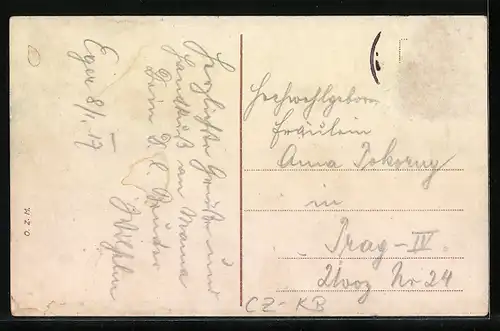 Eger 8/I. 17
Herzlichste Grüße und
Handkuß an Mama
Dein D. l. Bruder
Wilhelm
Hochwohlgeboren
Fräulein
Anna Pokorny
in
Prag-IV.
Úvoz Nr 24
CZ-KB
O. Z. M.